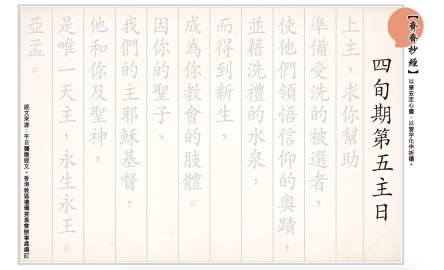 【齊齊抄經】
以筆安定心靈，以習字化作祈禱。
四旬期第五主日
上主，求你幫助
準備受洗的被選者，
使他們領悟信仰的奧蹟，
並藉洗禮的水泉，
而得到新生，
成為你教會的肢體。
因你的聖子、
我們的主耶穌基督，
他和你及聖神，
是唯一天主，永生永王。
亞孟。
經文來源：平日彌撒經文。香港教區禮儀委員會辦事處編訂